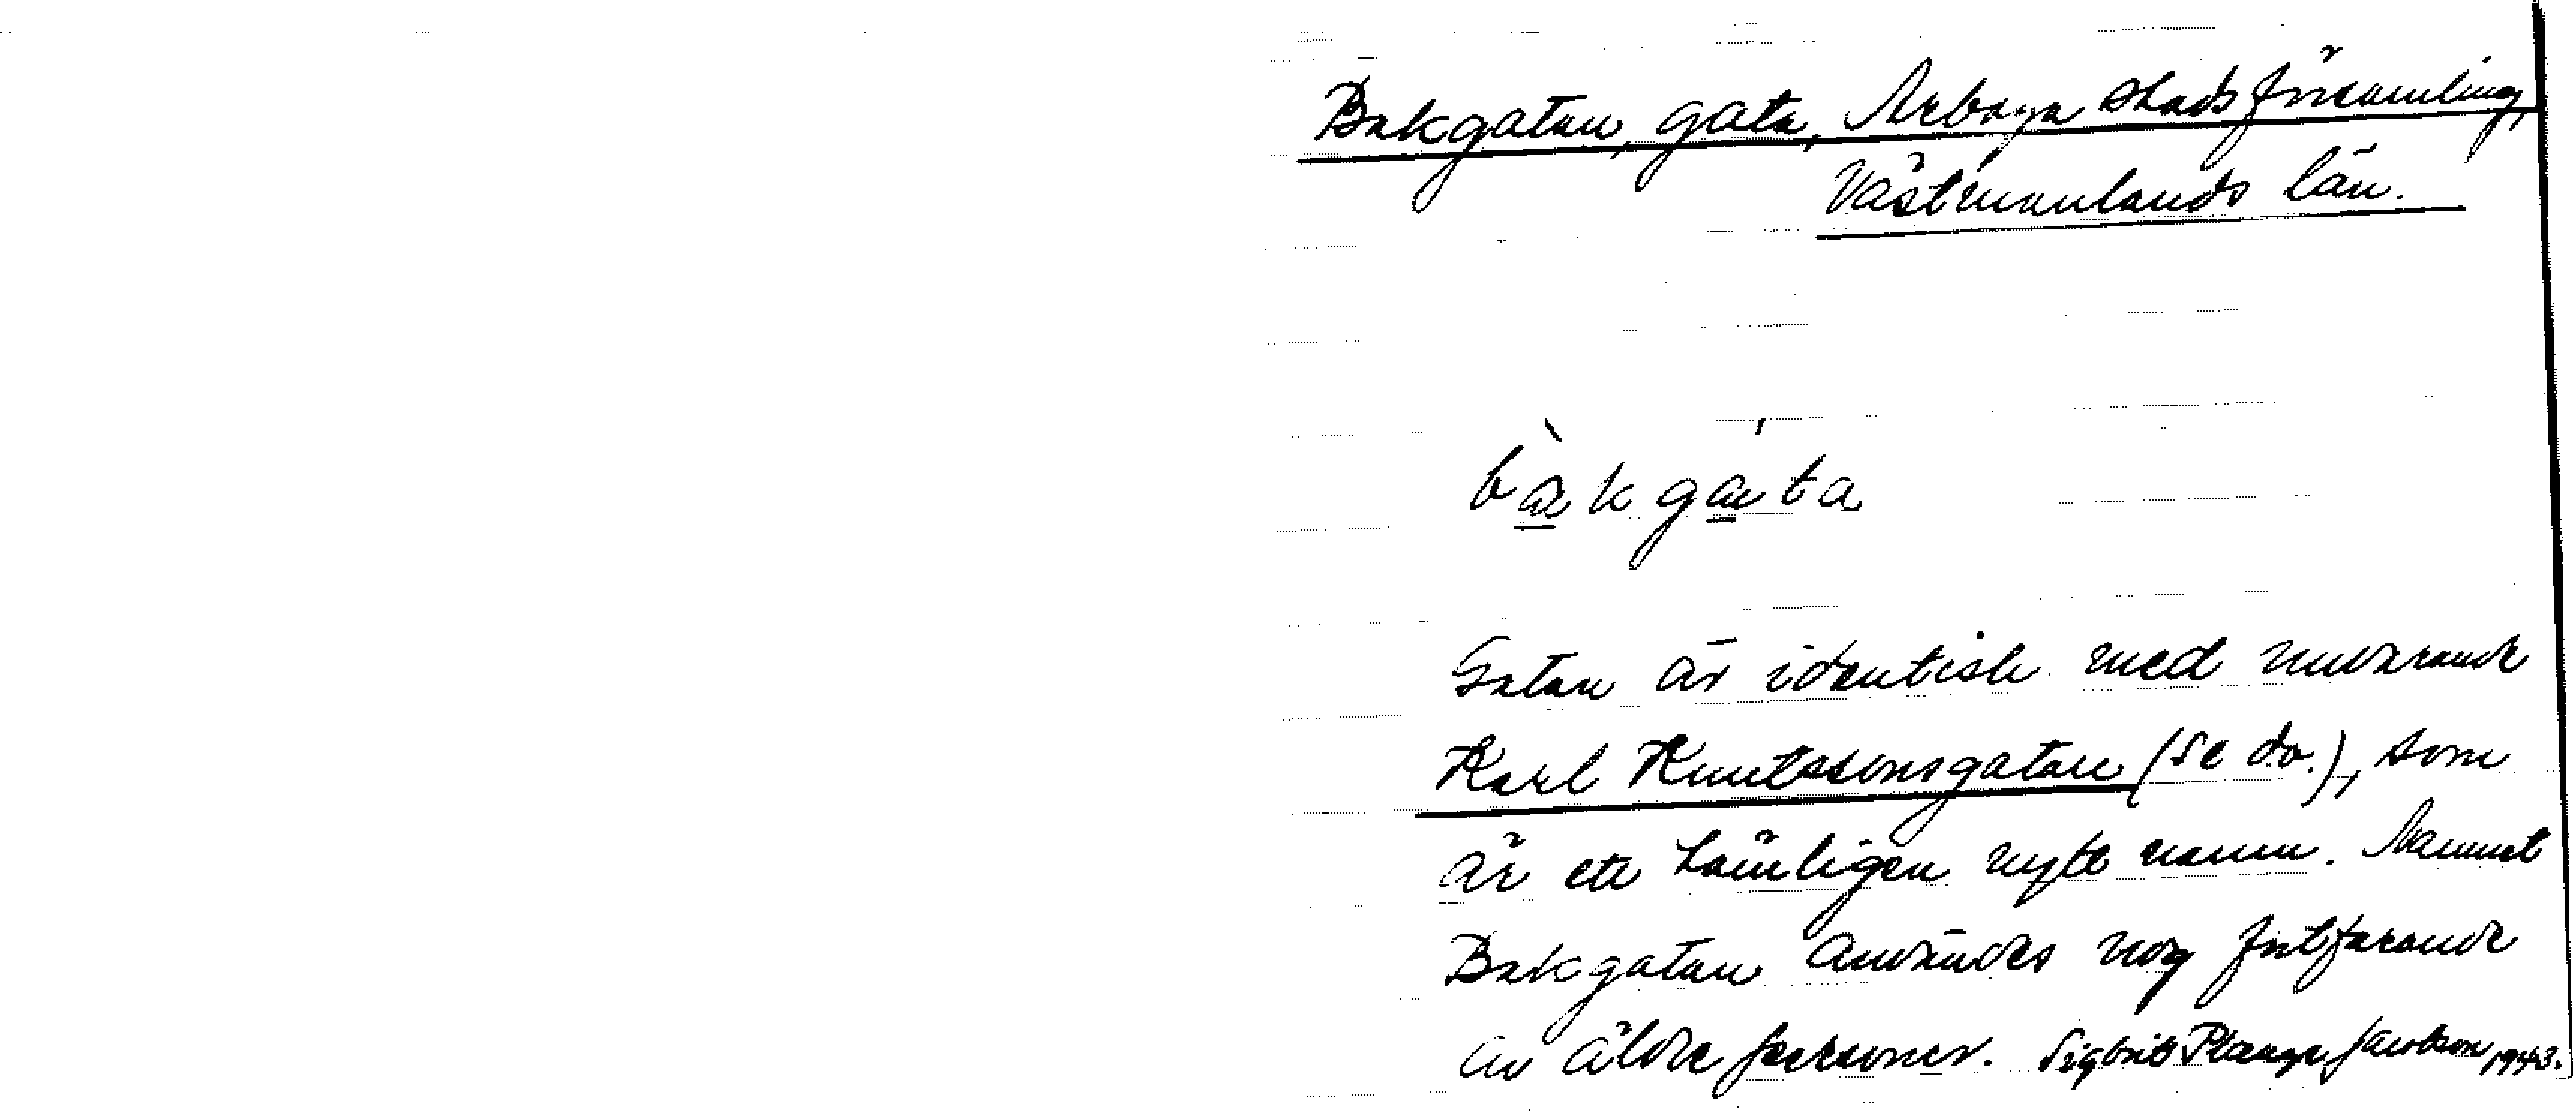 Bakgatan, gata, Arboga stadsförsamling,
Västmanlands län.
bàkgáta
Gatan är identisk med nuvarande
Karl Knutssonsgatan (se do.), som
är ett tämligen nytt namn. Namnet
Bakgatan användes nog fortfarande
av äldre personer. Sigbrit Plaenge Jacobson 1943.